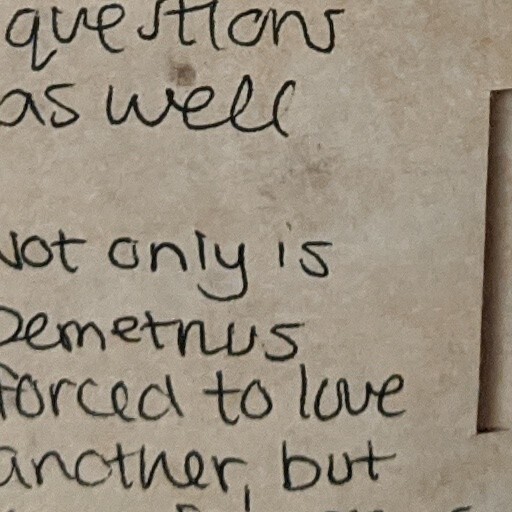 questions
as well
Not only is
Demetrius
forced to love
another, but